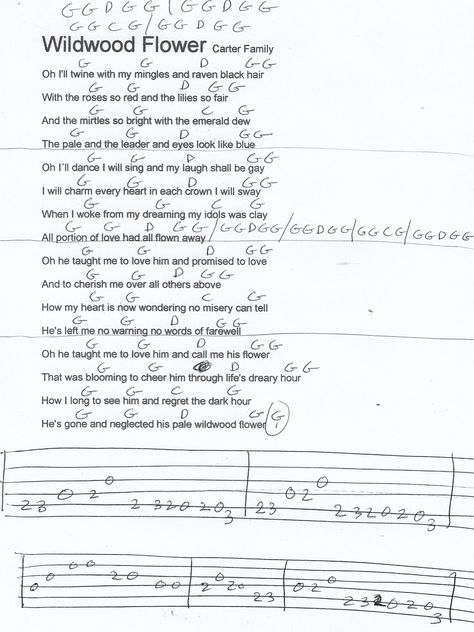 G G D G G / G G D G G
G G C G / G G D G G
Wildwood Flower Carter Family
G G D G G
Oh I'll twine with my mingles and raven black hair
G G D G G
With the roses so red and the lilies so fair
G G C G
And the mirtles so bright with the emerald dew
G G D G G
The pale and the leader and eyes look like blue
G G D G G
Oh I´ll dance I will sing and my laugh shall be gay
G G D G G
I will charm every heart in each crown I will sway
G G C G
When I woke from my dreaming my idols was clay
G G D G G / G G D G G / G G D G G / G G C G / G G D G G
All portion of love had all flown away
G G D G G
Oh he taught me to love him and promised to love
G G D G G
And to cherish me over all others above
G G C G
How my heart is now wondering no misery can tell
G G D G G
He's left me no warning no words of farewell
G G D G G
Oh he taught me to love him and call me his flower
G G D G G
That was blooming to cheer him through life's dreary hour
G G C G
How I long to see him and regret the dark hour
G G D G / G
He's gone and neglected his pale wildwood flower
2 3 0 2 0 2 3 2 0 2 0 3 2 3 0 2 0 2 3 2 0 2 0 3
0 0 0 0 2 0 0 0 2 0 2 0 2 3 0 2 0 2 3 2 0 2 0 3